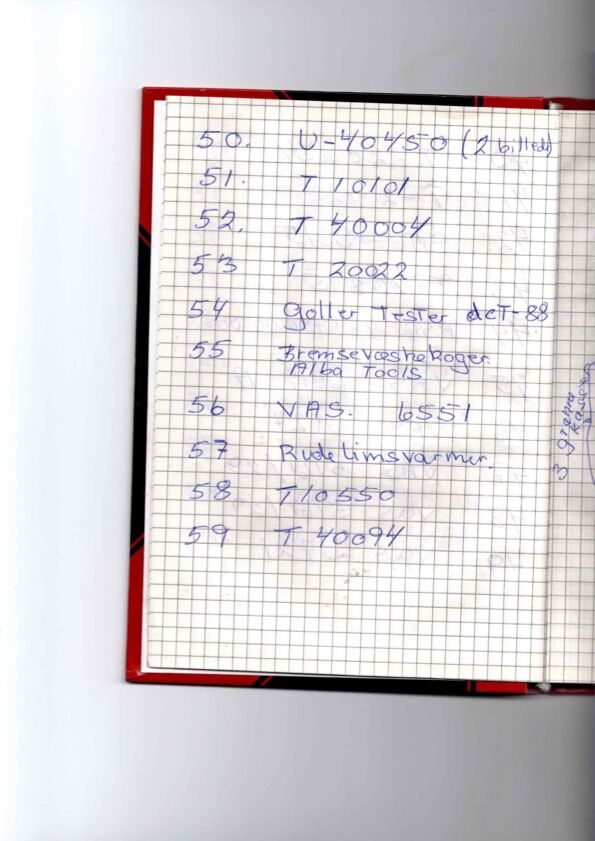 50. U-40450 (2 billed)
51. T 10101
52. T 40004
53 T 20022
54 Goller Tester dcT-88
55 Bremsevæskekoger.
Alba Tools
56 VAS. 6551
57 Rudelimsvarmer.
58 T10550
59 T 40094
3 grønne